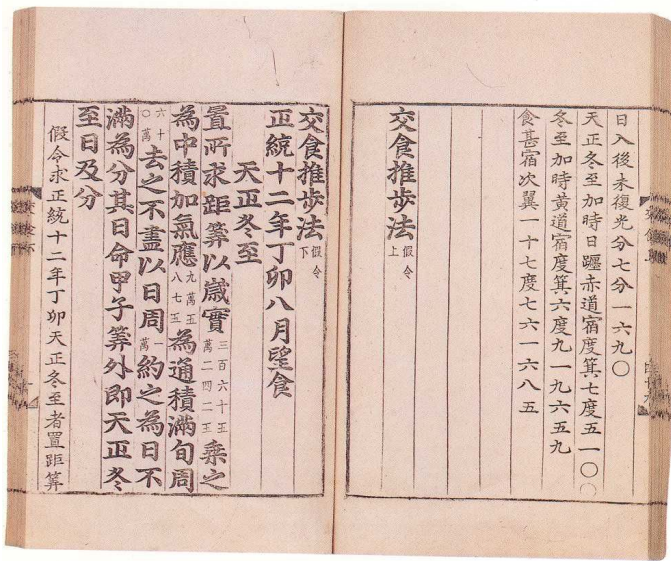 日入後未復光分七分一六九〇
天正冬至加時日躔赤道宿度箕七度五一〇〇
冬至加時黃道宿度箕六度九一九六五九
食甚宿次翼一十七度七六一六八五
交食推步法假令上
交食推步法假令下
正統十二年丁卯八月望食
天正冬至
置所求距筭以歲實三百六十五萬二四二五乘之
為中積加氣應九萬五八七五為通積滿旬周
六十〇萬去之不盡以日周一萬約之為日不
滿為分其日命甲子筭外即天正冬
至日及分
假令求正統十二年丁卯天正冬至者置距筭